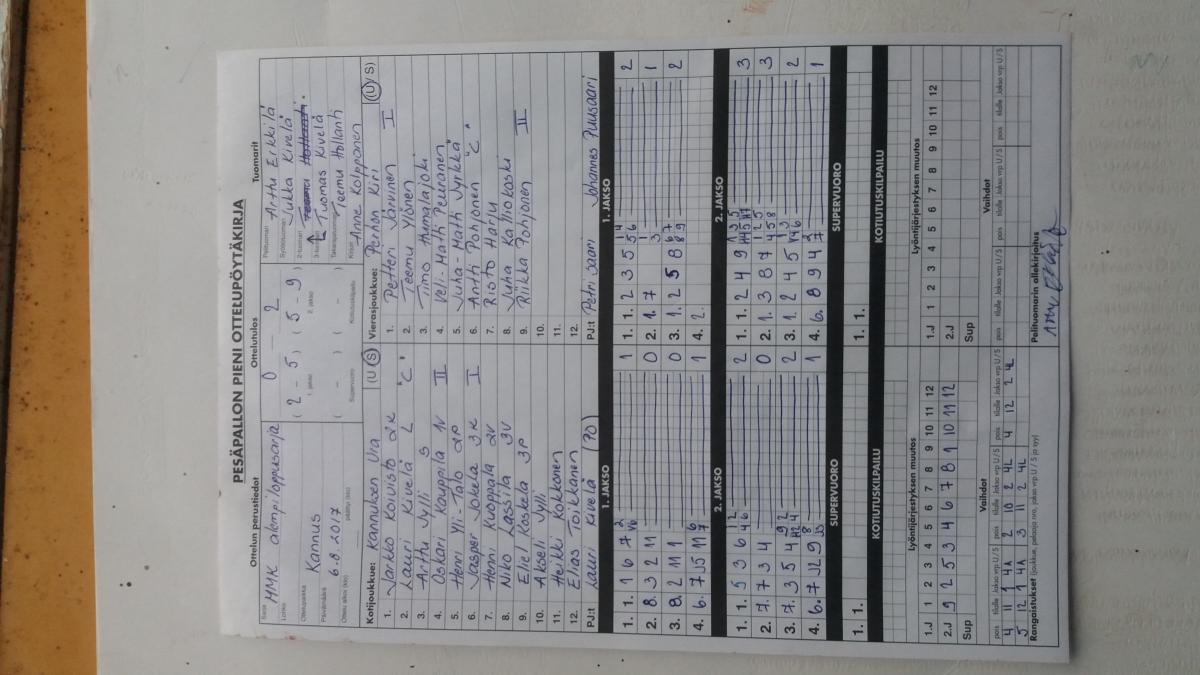 PESÄPALLON PIENI OTTELUPÖYTÄKIRJA
Ottelun perustiedot
Ottelutulos
Tuomarit
Sarja HMK alempi loppusarja
0 - 2
Pelituomari Arttu Erkkilä
Lohko
Syöttötuomari Jukka Kivelä
Ottelupaikka Kannus
( 2 - 5 ) ( 5 - 9 )
1. jakso 2. jakso
2-tuomari
3-tuomari Tuomas Kivelä
Päivämäärä 6.8.2017
( - ) ( - )
Supervuoro Kotiutuskilpailu
Takarajatuomari Teemu Hollanti
Kirjuri Anne Kolppanen
Kotijoukkue: Kannuksen Ura (U S)
1. Jarkko Koivisto 2K
2. Lauri Kivelä L "C"
3. Arttu Jylli S
4. Oskari Kauppila 1V II
5. Henri Yli-Talo 2P
6. Jasper Jokela 3K I
7. Henri Kuoppala 2V
8. Niko Lassila 3V
9. Eliel Koskela 3P
10. Akseli Jylli
11. Heikki Kokkonen
12. Elias Toikkanen
PJ:t Lauri Kivelä (70)
Vierasjoukkue: Perhon Kiri (U S)
1. Petteri Järvinen I
2. Teemu Ylönen
3. Timo Humalajoki
4. Veli-Matti Peuranen
5. Juha-Matti Jyrkkä
6. Antti Pohjonen "C"
7. Risto Harju
8. Juha Kalliokoski
9. Riikka Pohjonen II
10.
11.
12.
PJ:t Petri Saari Johannes Puusaari
1. JAKSO
1. 1. 1 6 7 1
2. 8. 3 2 11 0
3. 8. 2 11 1 0
4. 6. 7 1
1. JAKSO
1. 1. 1 2 3 5 5 2
2. 1. 7 1
3. 1. 2 5 8 2
4. 2.
2. JAKSO
1. 1. 5 3 6 2
2. 7. 7 3 4 0
3. 7. 3 5 4 2
4. 6. 7 12 9 1
2. JAKSO
1. 1. 1 2 4 9 3
2. 1. 3 8 7 3
3. 1. 2 4 5 2
4. 6. 8 9 4 1
SUPERVUORO
1. 1.
SUPERVUORO
1. 1.
KOTIUTUSKILPAILU
KOTIUTUSKILPAILU
Lyöntijärjestyksen muutos
1.J 1 2 3 4 5 6 7 8 9 10 11 12
2.J 9 2 5 3 4 6 7 8 1 10 11 12
Sup
Lyöntijärjestyksen muutos
1.J 1 2 3 4 5 6 7 8 9 10 11 12
2.J
Sup
Vaihdot
pois tilalle Jakso vrp U / S pois tilalle Jakso vrp U / S pois tilalle Jakso vrp U / S
4 11 1 4A 2 10 2 4L 4 12 2 4L
5 12 1 4A 3 11 2 4L
Vaihdot
pois tilalle Jakso vrp U / S pois tilalle Jakso vrp U / S pois tilalle Jakso vrp U / S
Rangaistukset (joukkue, pelaaja nro, jakso vrp U / S ja syy)
Pelituomarin allekirjoitus